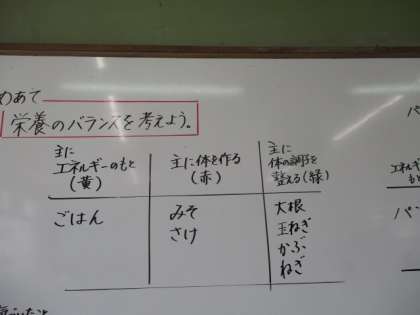 めあて
栄養のバランスを考えよう。
主に
エネルギーのもと
(黄)
主に体を作る
(赤)
主に
体の調子を
整える(緑)
ごはん
みそ
さけ
大根
玉ねぎ
かぶ
ねぎ
エネルギー